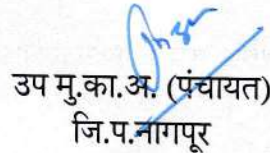 उप मु.का.अ. (पंचायत)
जि.प.नागपूर